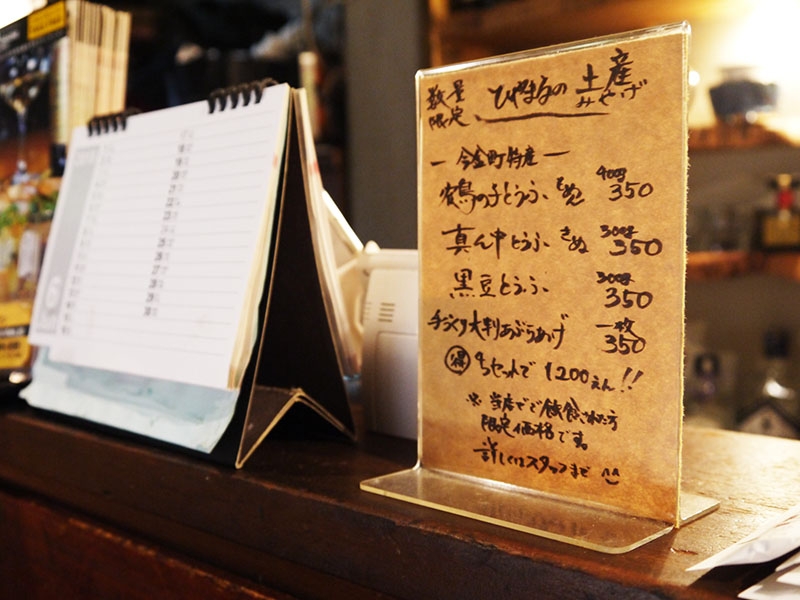 数量限定 ひやまるの土産
みやげ
― 今金町特産 ―
鶴の子とうふ もめん 400g 350
真ん中とうふ きぬ 300g 350
黒豆とうふ 300g 350
手づくり大判あぶらあげ 一枚 350
得 4セットで 1200えん!!
※ 当店でご飲食された方
限定価格です。
詳しくはスタッフまで ^^